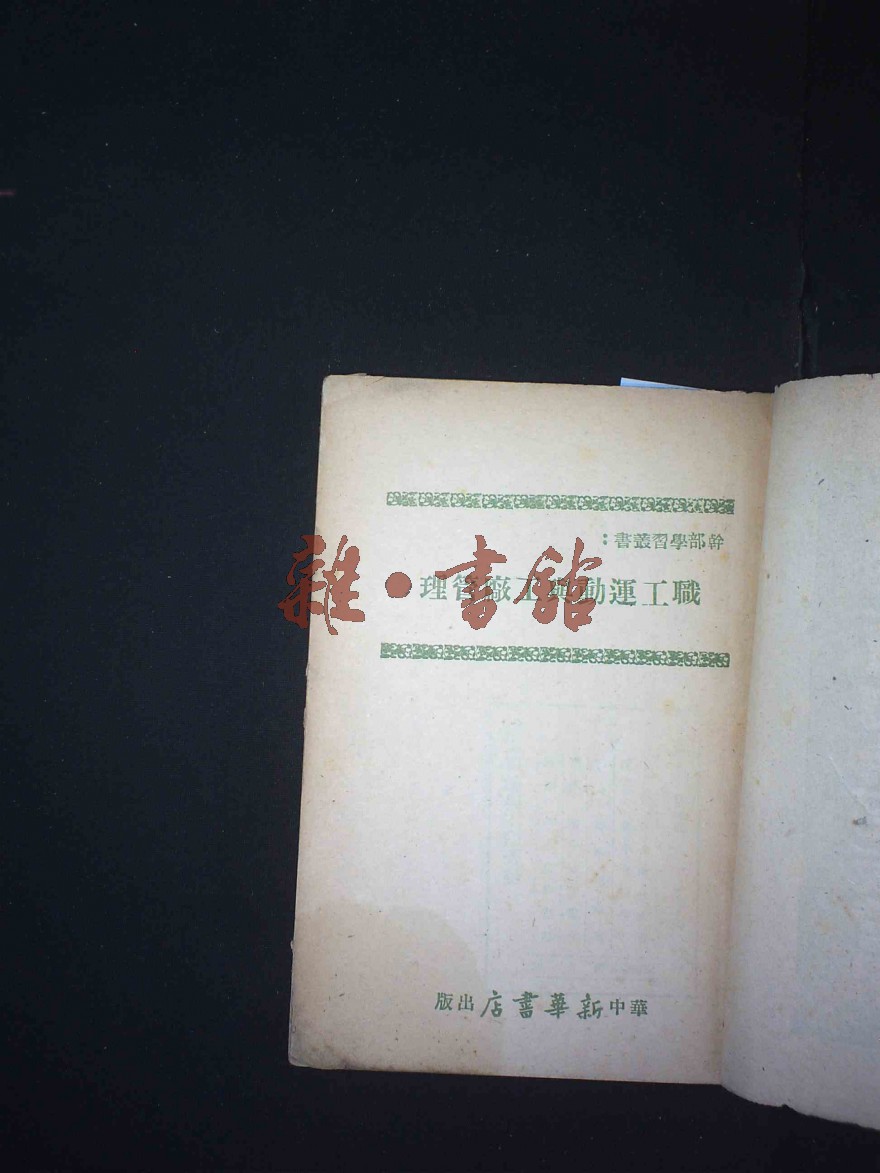 幹部學習叢書：
職工運動與工廠管理
雜·書館
華中新華書店出版